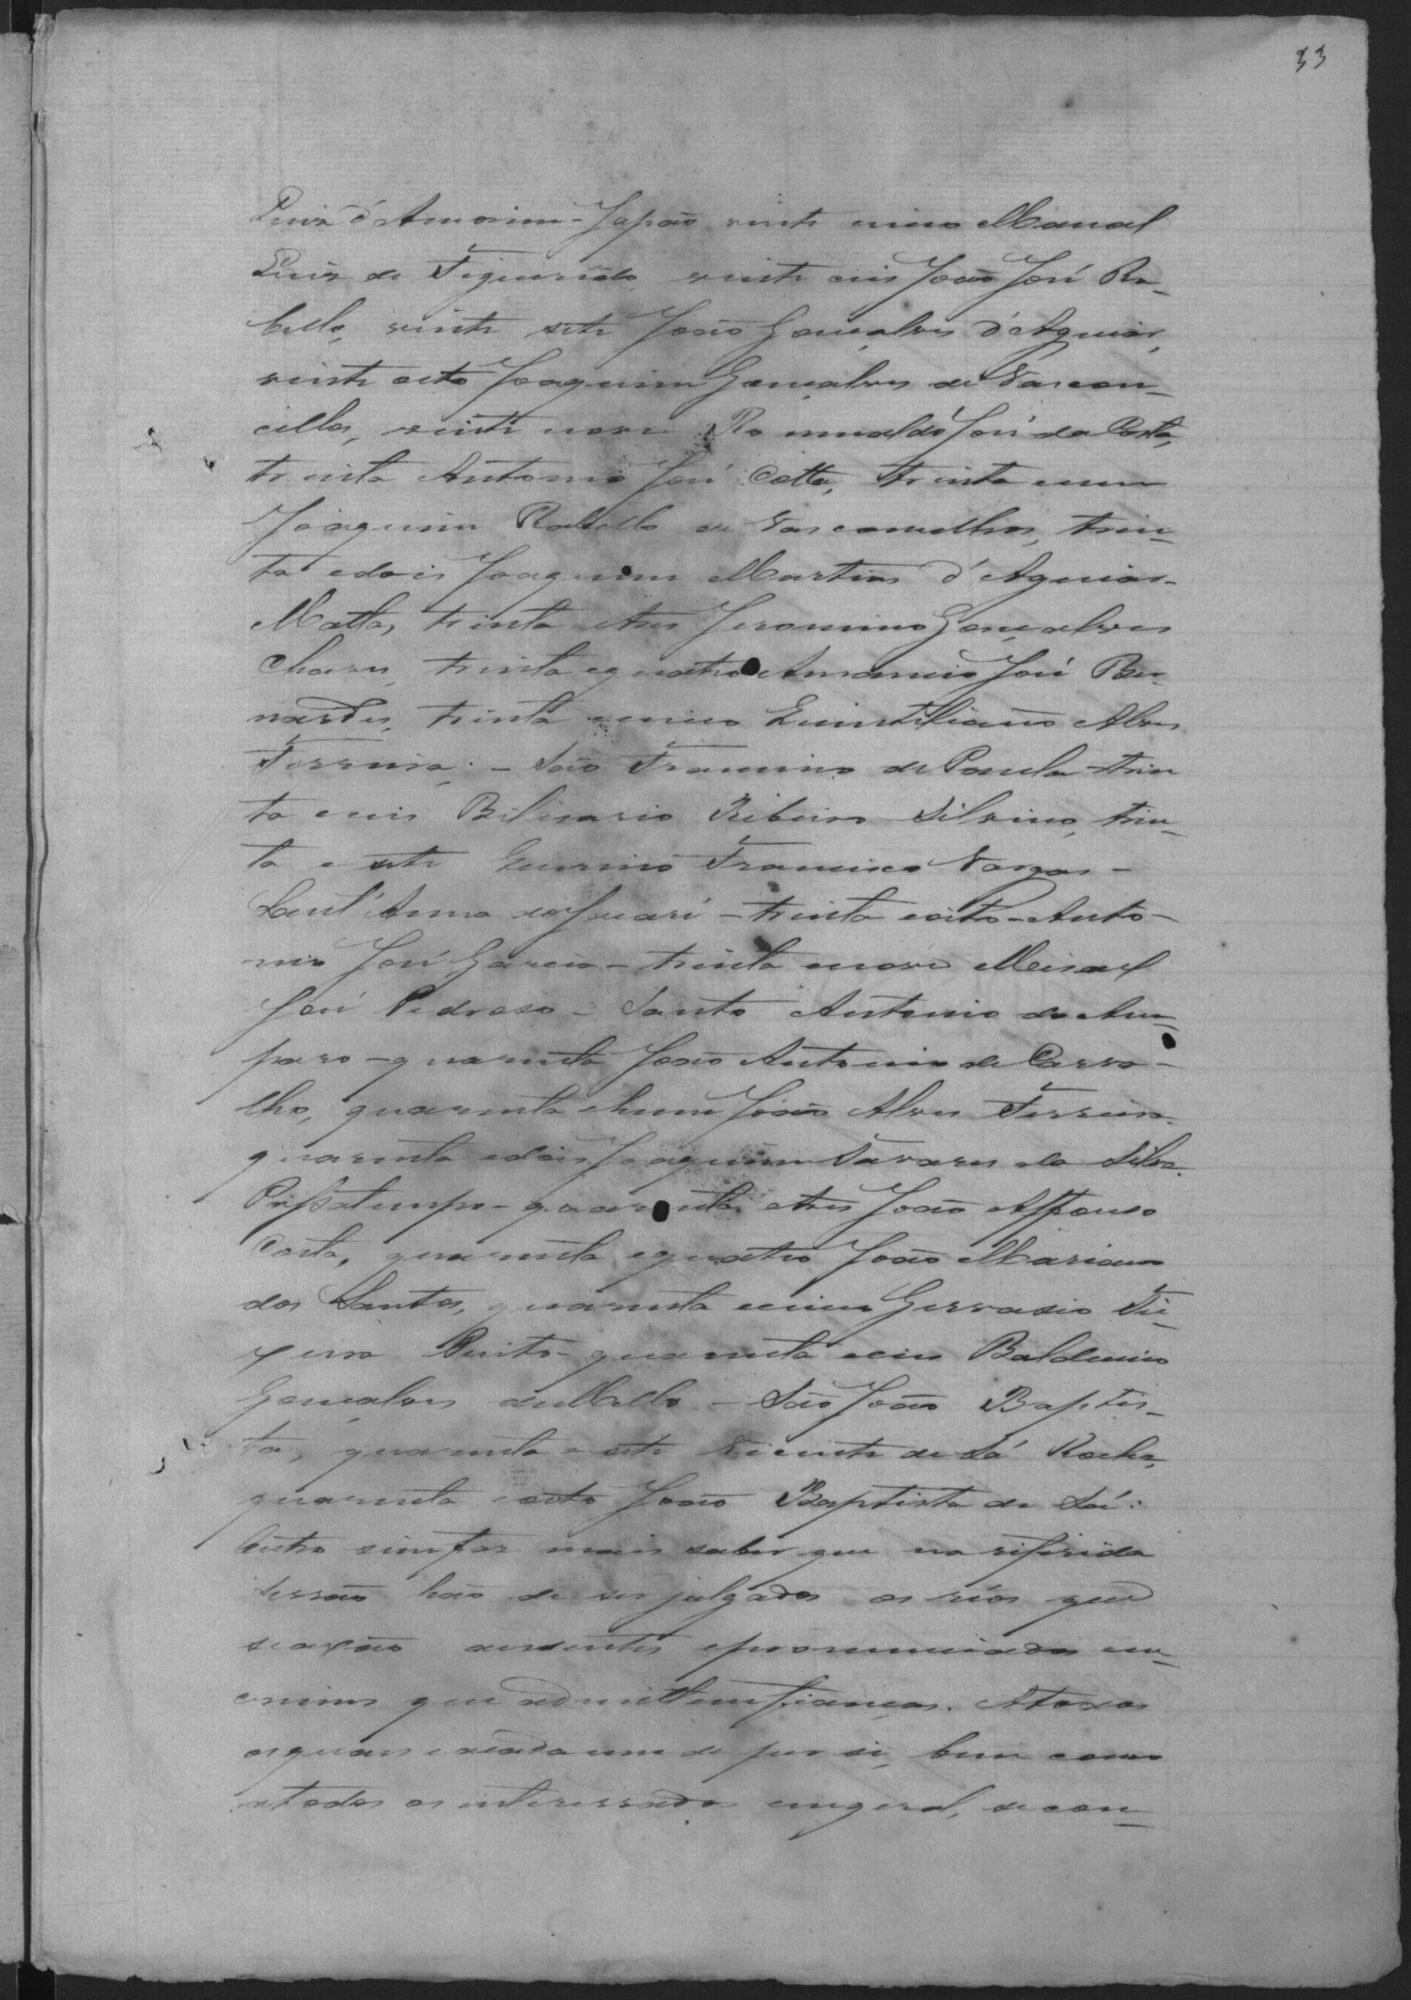 33
Luiz d'Amorim - Japão vinte cinco Manoel
Luiz de Figueirêdo, vinte seis João José Ra-
bello, vinte sete João Gonçalves d'Aguiar,
vinte oito Joaquim Gonçalves de Vascon-
cellos, vinte nove Romualdo José da Costa,
trinta Antonio José Cotta, trinta eum
Joaquim Rabello de Vasconcellos, trin-
ta edois Joaquim Martins d'Aguiar-
Matta, trinta etres Jeronimo Gonçalves
Chaves, trinta equatro Amancio José Ber-
nardes, trinta ecinco Quintiliano Alves
Ferreira; - São Francisco de Paula trin
ta eseis Bilisario Ribeiro Silvino, trin-
ta e sete Francisco Vargas -
Sant'Anna do Jacaré - trinta eoito - Anto-
nio José Garcia - trinta enove Misael
José Pedroso - Santo Antonio do Am-
paro - quarenta João Antonio de Carva-
lho, quarenta ehum João Alves Ferreira,
quarenta edois Joaquim Tavares da Silva.
Passatempo - quarenta etres João Affonso
Costa, quarenta equatro João Mariano
dos Santos, quarenta ecinco Gervasio Tei-
xeira Pinto - quarenta eseis Balduino
Gonçalves deMello - São João Baptis-
ta, quarenta e sete Vicente de Sá Rocha,
quarenta eoito João Baptista de Sá:
Outro sim faz mais saber que na referida
sessão hão de ser julgados os réos que
se achão ausentes epronunciados em
crimes que admittem fianças. Atodos
osquaes ecada um de per si, bem como
atodos os interessados emgeral, se con-